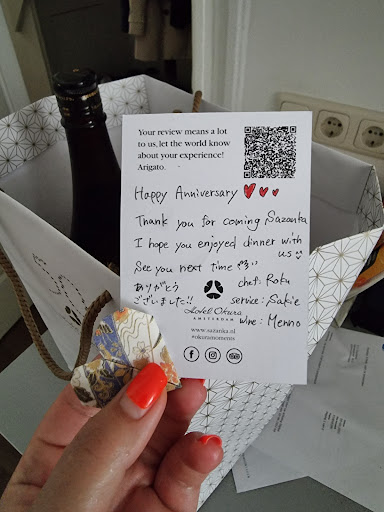 Your review means a lot
to us, let the world know
about your experience!
Arigato.
Happy Anniversary
Thank you for coming Sazanka
I hope you enjoyed dinner with
us
See you next time
ありがとう
ございました!!
chef: Roku
service: Sakie
wine: Menno
Hotel Okura
AMSTERDAM
www.sazanka.nl
#okuramoments